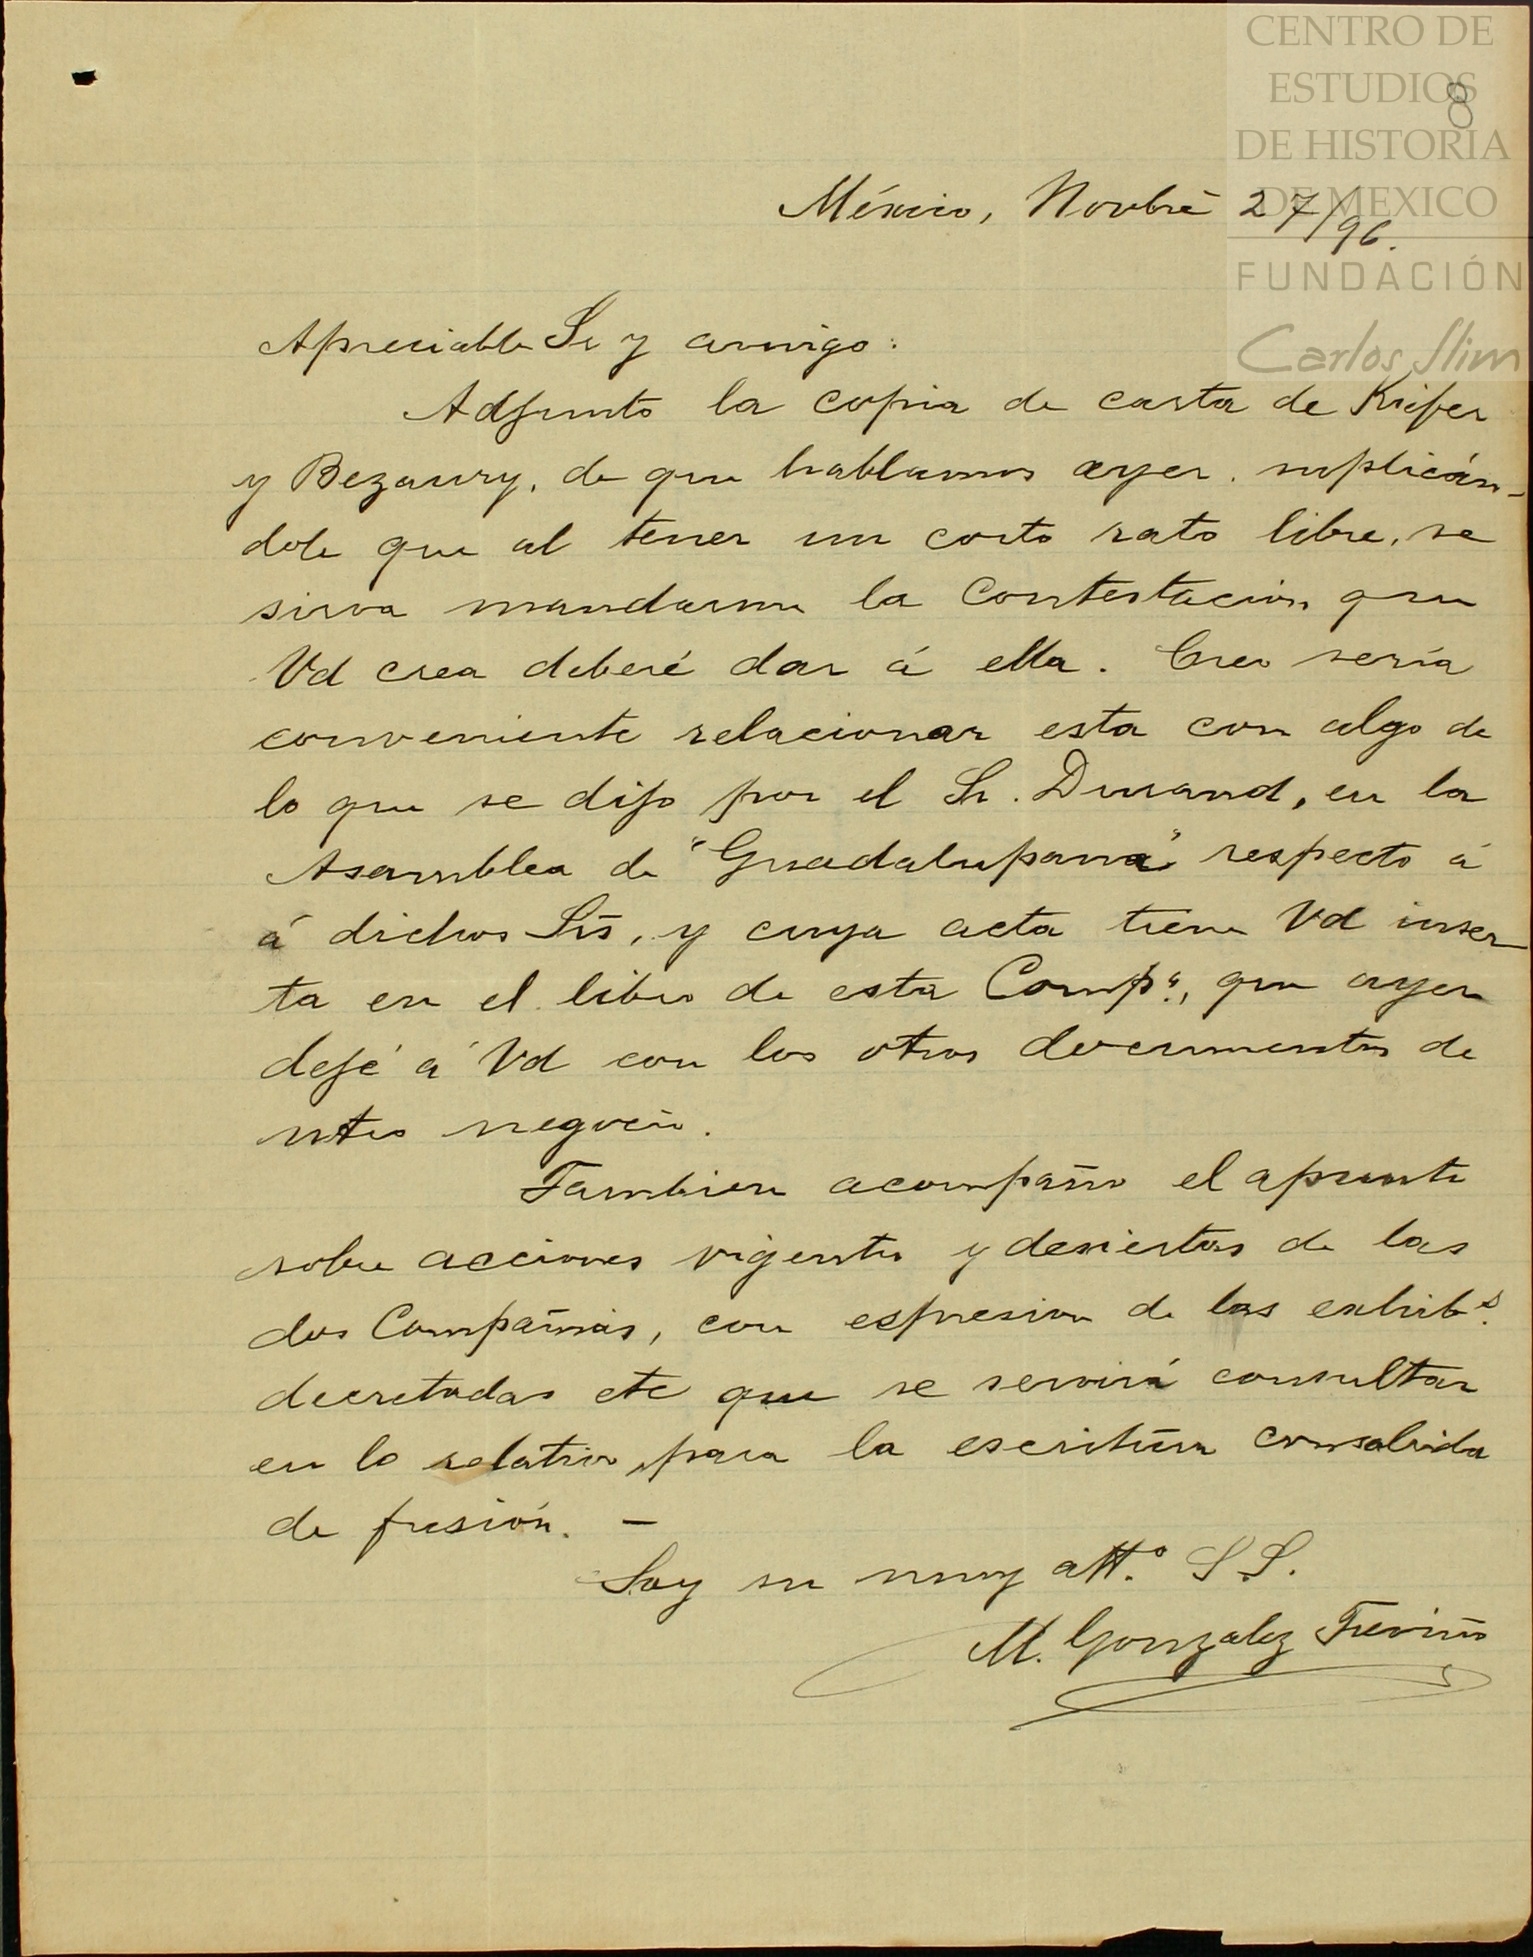 CENTRO DE
ESTUDIOS
DE HISTORIA
DE MEXICO
FUNDACIÓN
Carlos Slim
8
México, Novbre 27/96.
Apreciable Sr y amigo:
Adjunto la copia de carta de Kieffer
y Bezaury, de que hablamos ayer. suplicán-
dole que al tener un corto rato libre, se
sirva mandarme la contestacion que
Vd crea deberé dar á ella. Creo sería
conveniente relacionar esta con algo de
lo que se dijo por el Sr. Durand, en la
Asamblea de "Guadalupana" respecto á
á dichos Srs, y cuya acta tiene Vd inser-
ta en el libro de esta Compª, que ayer
dejé á Vd con los otros documentos de
ntro negocio.
Tambien acompaño el apunte
sobre acciones vigentes y desiertas de las
dos Compañias, con espresion de las exhibs.
decretadas etc que se servirá consultar
en lo relativo para la escritura consabida
de fusión. —
Soy su muy att.º S S.
M. Gonzalez Treviño